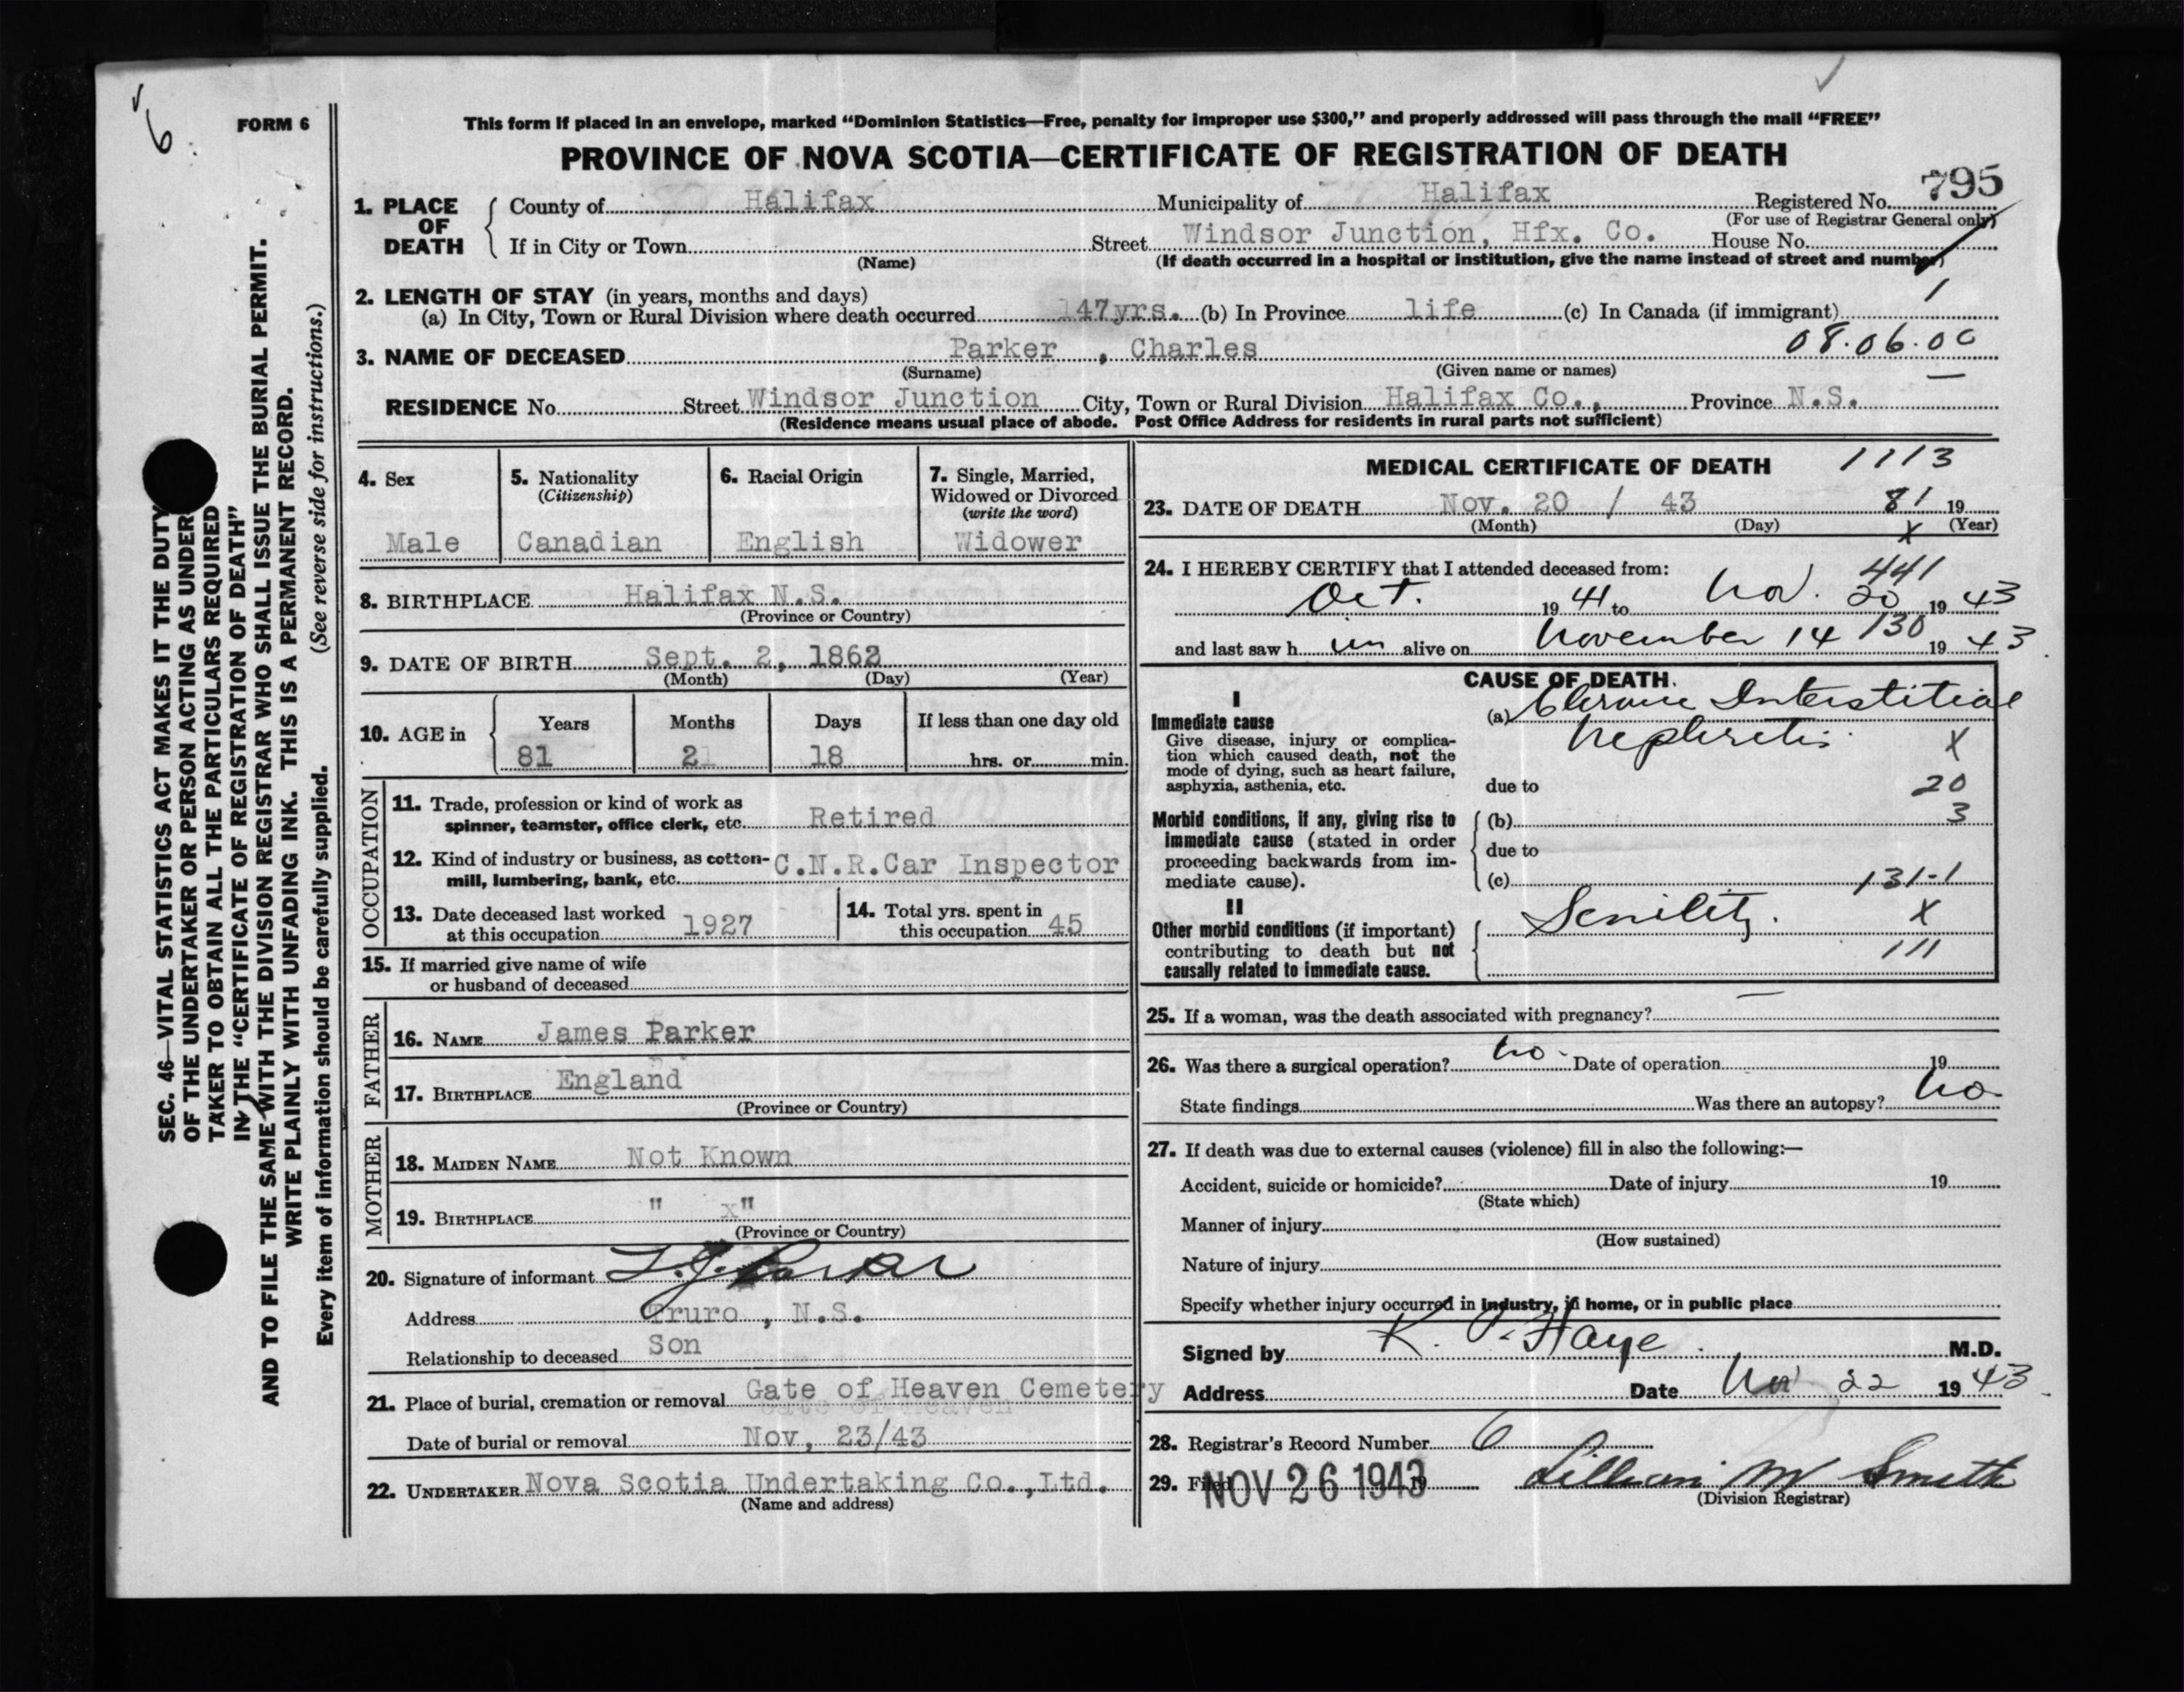 6
FORM 6
This form if placed in an envelope, marked “Dominion Statistics—Free, penalty for improper use $300,” and properly addressed will pass through the mail “FREE”
PROVINCE OF NOVA SCOTIA—CERTIFICATE OF REGISTRATION OF DEATH
SEC. 46—VITAL STATISTICS ACT MAKES IT THE DUTY
OF THE UNDERTAKER OR PERSON ACTING AS UNDER
TAKER TO OBTAIN ALL THE PARTICULARS REQUIRED
IN THE “CERTIFICATE OF REGISTRATION OF DEATH”
AND TO FILE THE SAME WITH THE DIVISION REGISTRAR WHO SHALL ISSUE THE BURIAL PERMIT.
WRITE PLAINLY WITH UNFADING INK. THIS IS A PERMANENT RECORD.
Every item of information should be carefully supplied. (See reverse side for instructions.)
1. PLACE OF DEATH County of Halifax Municipality of Halifax Registered No. 795
(For use of Registrar General only)
If in City or Town Street Windsor Junction, Hfx. Co. House No.
(Name) (If death occurred in a hospital or institution, give the name instead of street and number)
2. LENGTH OF STAY (in years, months and days) 1
(a) In City, Town or Rural Division where death occurred 47yrs. (b) In Province life (c) In Canada (if immigrant)
3. NAME OF DECEASED Parker , Charles 08.06.00
(Surname) (Given name or names)
RESIDENCE No. Street Windsor Junction City, Town or Rural Division Halifax Co., Province N.S.
(Residence means usual place of abode. Post Office Address for residents in rural parts not sufficient)
4. Sex
Male
5. Nationality
(Citizenship)
Canadian
6. Racial Origin
English
7. Single, Married,
Widowed or Divorced
(write the word)
Widower
8. BIRTHPLACE Halifax N.S.
(Province or Country)
9. DATE OF BIRTH Sept. 2, 1862
(Month) (Day) (Year)
10. AGE in Years Months Days If less than one day old
81 2 18 hrs. or min.
OCCUPATION
11. Trade, profession or kind of work as
spinner, teamster, office clerk, etc. Retired
12. Kind of industry or business, as cotton-
mill, lumbering, bank, etc. C.N.R.Car Inspector
13. Date deceased last worked
at this occupation 1927
14. Total yrs. spent in
this occupation 45
15. If married give name of wife
or husband of deceased
FATHER
16. NAME James Parker
17. BIRTHPLACE England
(Province or Country)
MOTHER
18. MAIDEN NAME Not Known
19. BIRTHPLACE " x"
(Province or Country)
20. Signature of informant Parker
Address Truro , N.S.
Relationship to deceased Son
21. Place of burial, cremation or removal Gate of Heaven Cemetery
Date of burial or removal Nov, 23/43
22. UNDERTAKER Nova Scotia Undertaking Co.,Ltd.
(Name and address)
MEDICAL CERTIFICATE OF DEATH 1113
23. DATE OF DEATH Nov. 20 / 43 81 19
(Month) (Day) (Year)
x
24. I HEREBY CERTIFY that I attended deceased from: 441
Oct. 19 41 to Nov. 20 19 43
and last saw h im alive on November 14 130 19 43
CAUSE OF DEATH.
I
Immediate cause
Give disease, injury or complica-
tion which caused death, not the
mode of dying, such as heart failure,
asphyxia, asthenia, etc.
(a) Chronic Interstitial
Nephritis X
due to 20
Morbid conditions, if any, giving rise to
immediate cause (stated in order
proceeding backwards from im-
mediate cause).
(b) 3
due to
(c) 131-1
II
Other morbid conditions (if important)
contributing to death but not
causally related to immediate cause.
Senility. X
111
25. If a woman, was the death associated with pregnancy? —
26. Was there a surgical operation? no. Date of operation 19
State findings Was there an autopsy? no
27. If death was due to external causes (violence) fill in also the following:—
Accident, suicide or homicide? Date of injury 19
(State which)
Manner of injury
(How sustained)
Nature of injury
Specify whether injury occurred in industry, in home, or in public place
Signed by K. M.D.
Address Date Nov 22 19 43
28. Registrar's Record Number 6
29. Filed NOV 26 1943 Lillian M Smith
(Division Registrar)